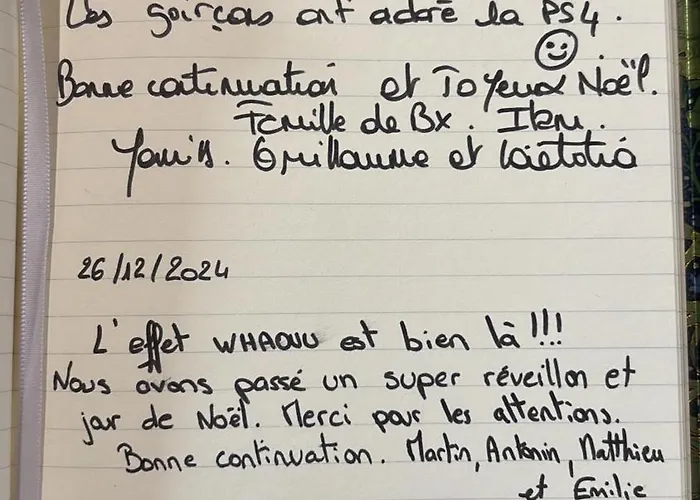 Les garçons ont adoré la PS4.
Bonne continuation et Joyeux Noël.
Famille de Bx. Ilan.
Yanis. Guillaume et Laetitia
26/12/2024
L'effet WHAOUU est bien là !!!
Nous avons passé un super réveillon et
jour de Noël. Merci pour les attentions.
Bonne continuation. Martin, Antonin, Matthieu
et Emilie